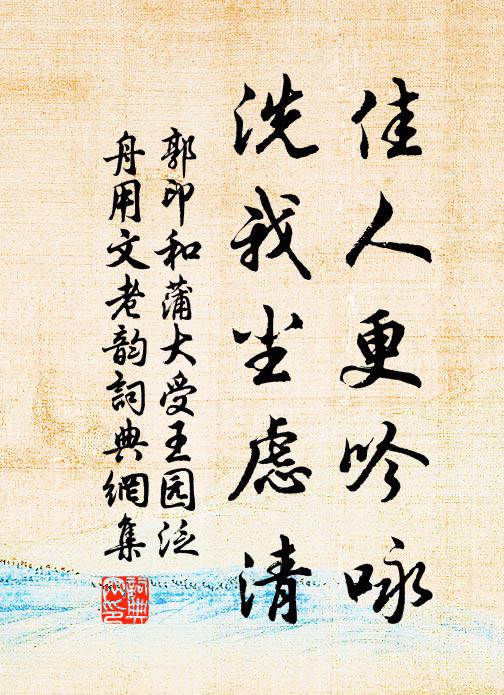 佳人更吟咏
洗我尘虑清
郭印和蒲大受王园泛
舟用文老韵詞典網集